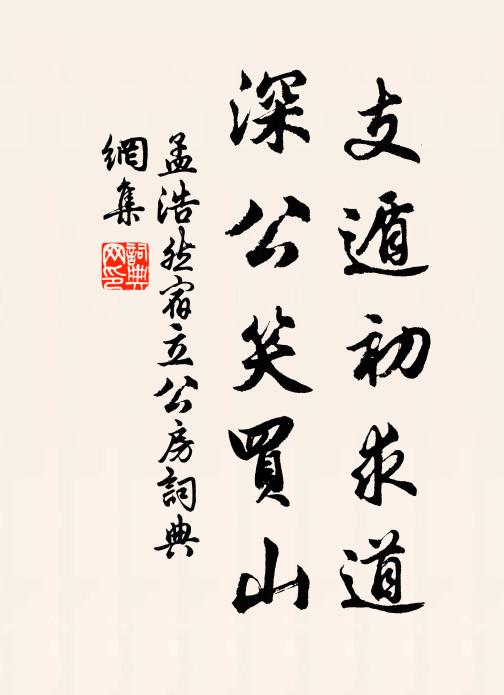 支遁初求道
深公笑買山
孟浩然宿立公房詞典
網集
詞典網印